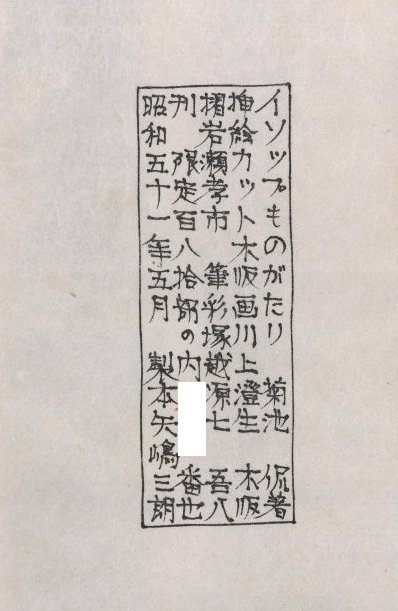 イソップものがたり 菊池 侃著
挿絵カット木版画川上澄生 木版
摺岩瀬孝市 筆彩塚越源七 吾八
刊 限定百八拾部の内 番也
昭和五十一年五月 製本矢嶋三朗